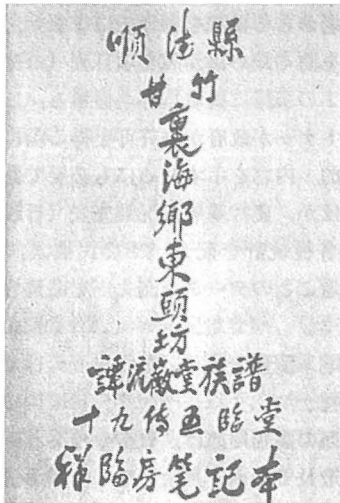 順德縣
甘竹
裏海鄉東頭坊
譚流徽堂族譜
十九傳五臨堂
祥臨房笔記本